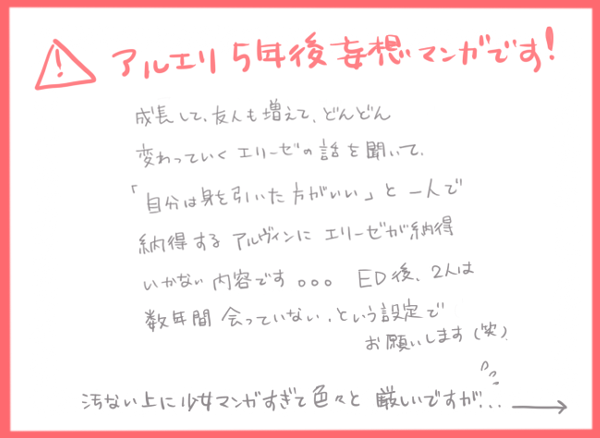 ！ アルエリ5年後妄想マンガです！
成長して、友人も増えて、どんどん
変わっていくエリーゼの話を聞いて、
「自分は身を引いた方がいい」と一人で
納得するアルヴィンにエリーゼが納得
いかない内容です。。。 ED後、2人は
数年間会っていない、という設定で
お願いします（笑）
汚ない上に少女マンガすぎて色々と厳しいですが... →